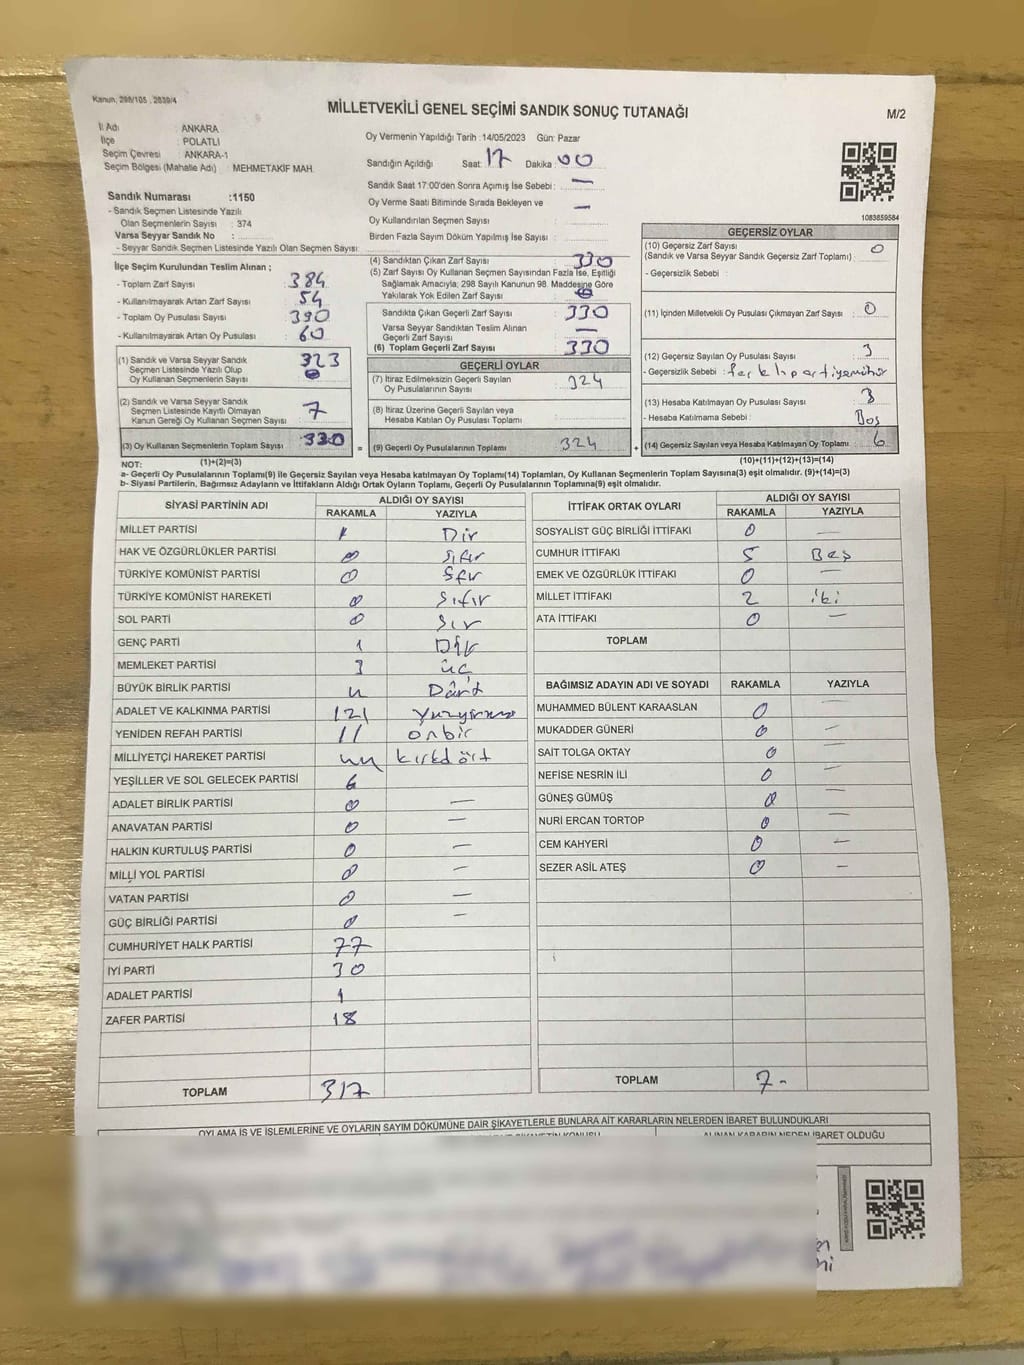 Kanun, 298/105 , 2839/4
MİLLETVEKİLİ GENEL SEÇİMİ SANDIK SONUÇ TUTANAĞI
M/2
İl Adı : ANKARA
İlçe : POLATLI
Seçim Çevresi : ANKARA-1
Seçim Bölgesi (Mahalle Adı) : MEHMETAKİF MAH.
Oy Vermenin Yapıldığı Tarih :14/05/2023 Gün: Pazar
Sandığın Açıldığı Saat: 17 Dakika: 00
Sandık Saat 17:00'den Sonra Açımış İse Sebebi : —
Oy Verme Saati Bitiminde Sırada Bekleyen ve —
Oy Kullandırılan Seçmen Sayısı :
Birden Fazla Sayım Döküm Yapılmış İse Sayısı :
1083659584
Sandık Numarası :1150
- Sandık Seçmen Listesinde Yazılı
Olan Seçmenlerin Sayısı : 374
Varsa Seyyar Sandık No :
- Seyyar Sandık Seçmen Listesinde Yazılı Olan Seçmen Sayısı:
İlçe Seçim Kurulundan Teslim Alınan ;
- Toplam Zarf Sayısı : 384
- Kullanılmayarak Artan Zarf Sayısı : 54
- Toplam Oy Pusulası Sayısı : 390
- Kullanılmayarak Artan Oy Pusulası : 60
(1) Sandık ve Varsa Seyyar Sandık
Seçmen Listesinde Yazılı Olup
Oy Kullanan Seçmenlerin Sayısı : 323
(2) Sandık ve Varsa Seyyar Sandık
Seçmen Listesinde Kayıtlı Olmayan
Kanun Gereği Oy Kullanan Seçmen Sayısı : 7
(3) Oy Kullanan Seçmenlerin Toplam Sayısı : 330
(4) Sandıktan Çıkan Zarf Sayısı : 330
(5) Zarf Sayısı Oy Kullanan Seçmen Sayısından Fazla İse, Eşitliği
Sağlamak Amacıyla; 298 Sayılı Kanunun 98. Maddesine Göre
Yakılarak Yok Edilen Zarf Sayısı :
Sandıkta Çıkan Geçerli Zarf Sayısı : 330
Varsa Seyyar Sandıktan Teslim Alınan
Geçerli Zarf Sayısı : —
(6) Toplam Geçerli Zarf Sayısı : 330
GEÇERLİ OYLAR
(7) İtiraz Edilmeksizin Geçerli Sayılan
Oy Pusulalarının Sayısı : 324
(8) İtiraz Üzerine Geçerli Sayılan veya
Hesaba Katılan Oy Pusulası Toplamı :
= (9) Geçerli Oy Pusulalarının Toplamı : 324
GEÇERSİZ OYLAR
(10) Geçersiz Zarf Sayısı
(Sandık ve Varsa Seyyar Sandık Geçersiz Zarf Toplamı) : 0
- Geçersizlik Sebebi :
(11) İçinden Milletvekili Oy Pusulası Çıkmayan Zarf Sayısı : 0
(12) Geçersiz Sayılan Oy Pusulası Sayısı : 3
- Geçersizlik Sebebi :
(13) Hesaba Katılmayan Oy Pusulası Sayısı : 3
- Hesaba Katılmama Sebebi : Boş
+ (14) Geçersiz Sayılan veya Hesaba Katılmayan Oy Toplamı : 6
NOT: (1)+(2)=(3)
(10)+(11)+(12)+(13)=(14)
a- Geçerli Oy Pusulalarının Toplamı(9) ile Geçersiz Sayılan veya Hesaba katılmayan Oy Toplamı(14) Toplamları, Oy Kullanan Seçmenlerin Toplam Sayısına(3) eşit olmalıdır. (9)+(14)=(3)
b- Siyasi Partilerin, Bağımsız Adayların ve İttifakların Aldığı Ortak Oyların Toplamı, Geçerli Oy Pusulalarının Toplamına(9) eşit olmalıdır.
SİYASİ PARTİNİN ADI ALDIĞI OY SAYISI
RAKAMLA YAZIYLA
MİLLET PARTİSİ 1 Bir
HAK VE ÖZGÜRLÜKLER PARTİSİ 0 sıfır
TÜRKİYE KOMÜNİST PARTİSİ 0 sfır
TÜRKİYE KOMÜNİST HAREKETİ 0 sıfır
SOL PARTİ 0
GENÇ PARTİ 1 Bir
MEMLEKET PARTİSİ 3 üç
BÜYÜK BİRLİK PARTİSİ 4 Dört
ADALET VE KALKINMA PARTİSİ 121
YENİDEN REFAH PARTİSİ 11 onbir
MİLLİYETÇİ HAREKET PARTİSİ 44 kırkdört
YEŞİLLER VE SOL GELECEK PARTİSİ 6
ADALET BİRLİK PARTİSİ 0 —
ANAVATAN PARTİSİ 0 —
HALKIN KURTULUŞ PARTİSİ 0 —
MİLLİ YOL PARTİSİ 0 —
VATAN PARTİSİ 0 —
GÜÇ BİRLİĞİ PARTİSİ 0 —
CUMHURİYET HALK PARTİSİ 77
İYİ PARTİ 30
ADALET PARTİSİ 1
ZAFER PARTİSİ 18
TOPLAM 317
İTTİFAK ORTAK OYLARI ALDIĞI OY SAYISI
RAKAMLA YAZIYLA
SOSYALİST GÜÇ BİRLİĞİ İTTİFAKI 0 —
CUMHUR İTTİFAKI 5 Beş
EMEK VE ÖZGÜRLÜK İTTİFAKI 0 —
MİLLET İTTİFAKI 2 iki
ATA İTTİFAKI 0 —
TOPLAM
BAĞIMSIZ ADAYIN ADI VE SOYADI RAKAMLA YAZIYLA
MUHAMMED BÜLENT KARAASLAN 0 —
MUKADDER GÜNERİ 0 —
SAİT TOLGA OKTAY 0 —
NEFİSE NESRİN İLİ 0 —
GÜNEŞ GÜMÜŞ 0 —
NURİ ERCAN TORTOP 0 —
CEM KAHYERİ 0 —
SEZER ASİL ATEŞ 0 —
TOPLAM 7-
OYLAMA İŞ VE İŞLEMLERİNE VE OYLARIN SAYIM DÖKÜMÜNE DAİR ŞİKAYETLERLE BUNLARA AİT KARARLARIN NELERDEN İBARET BULUNDUKLARI
ALINAN KARARIN NEDEN İBARET OLDUĞU